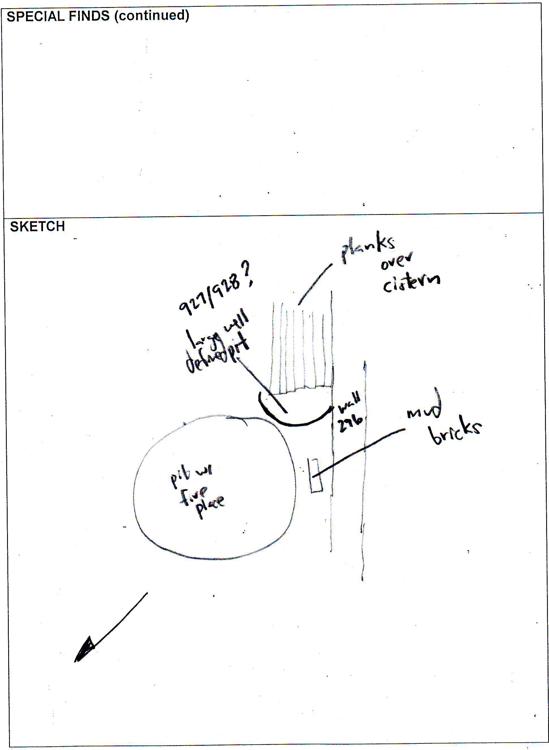 SPECIAL FINDS (continued)
SKETCH
planks
over
cistern
927/928?
large well
defined pit
wall
296
mud
bricks
pit w/
fire
place